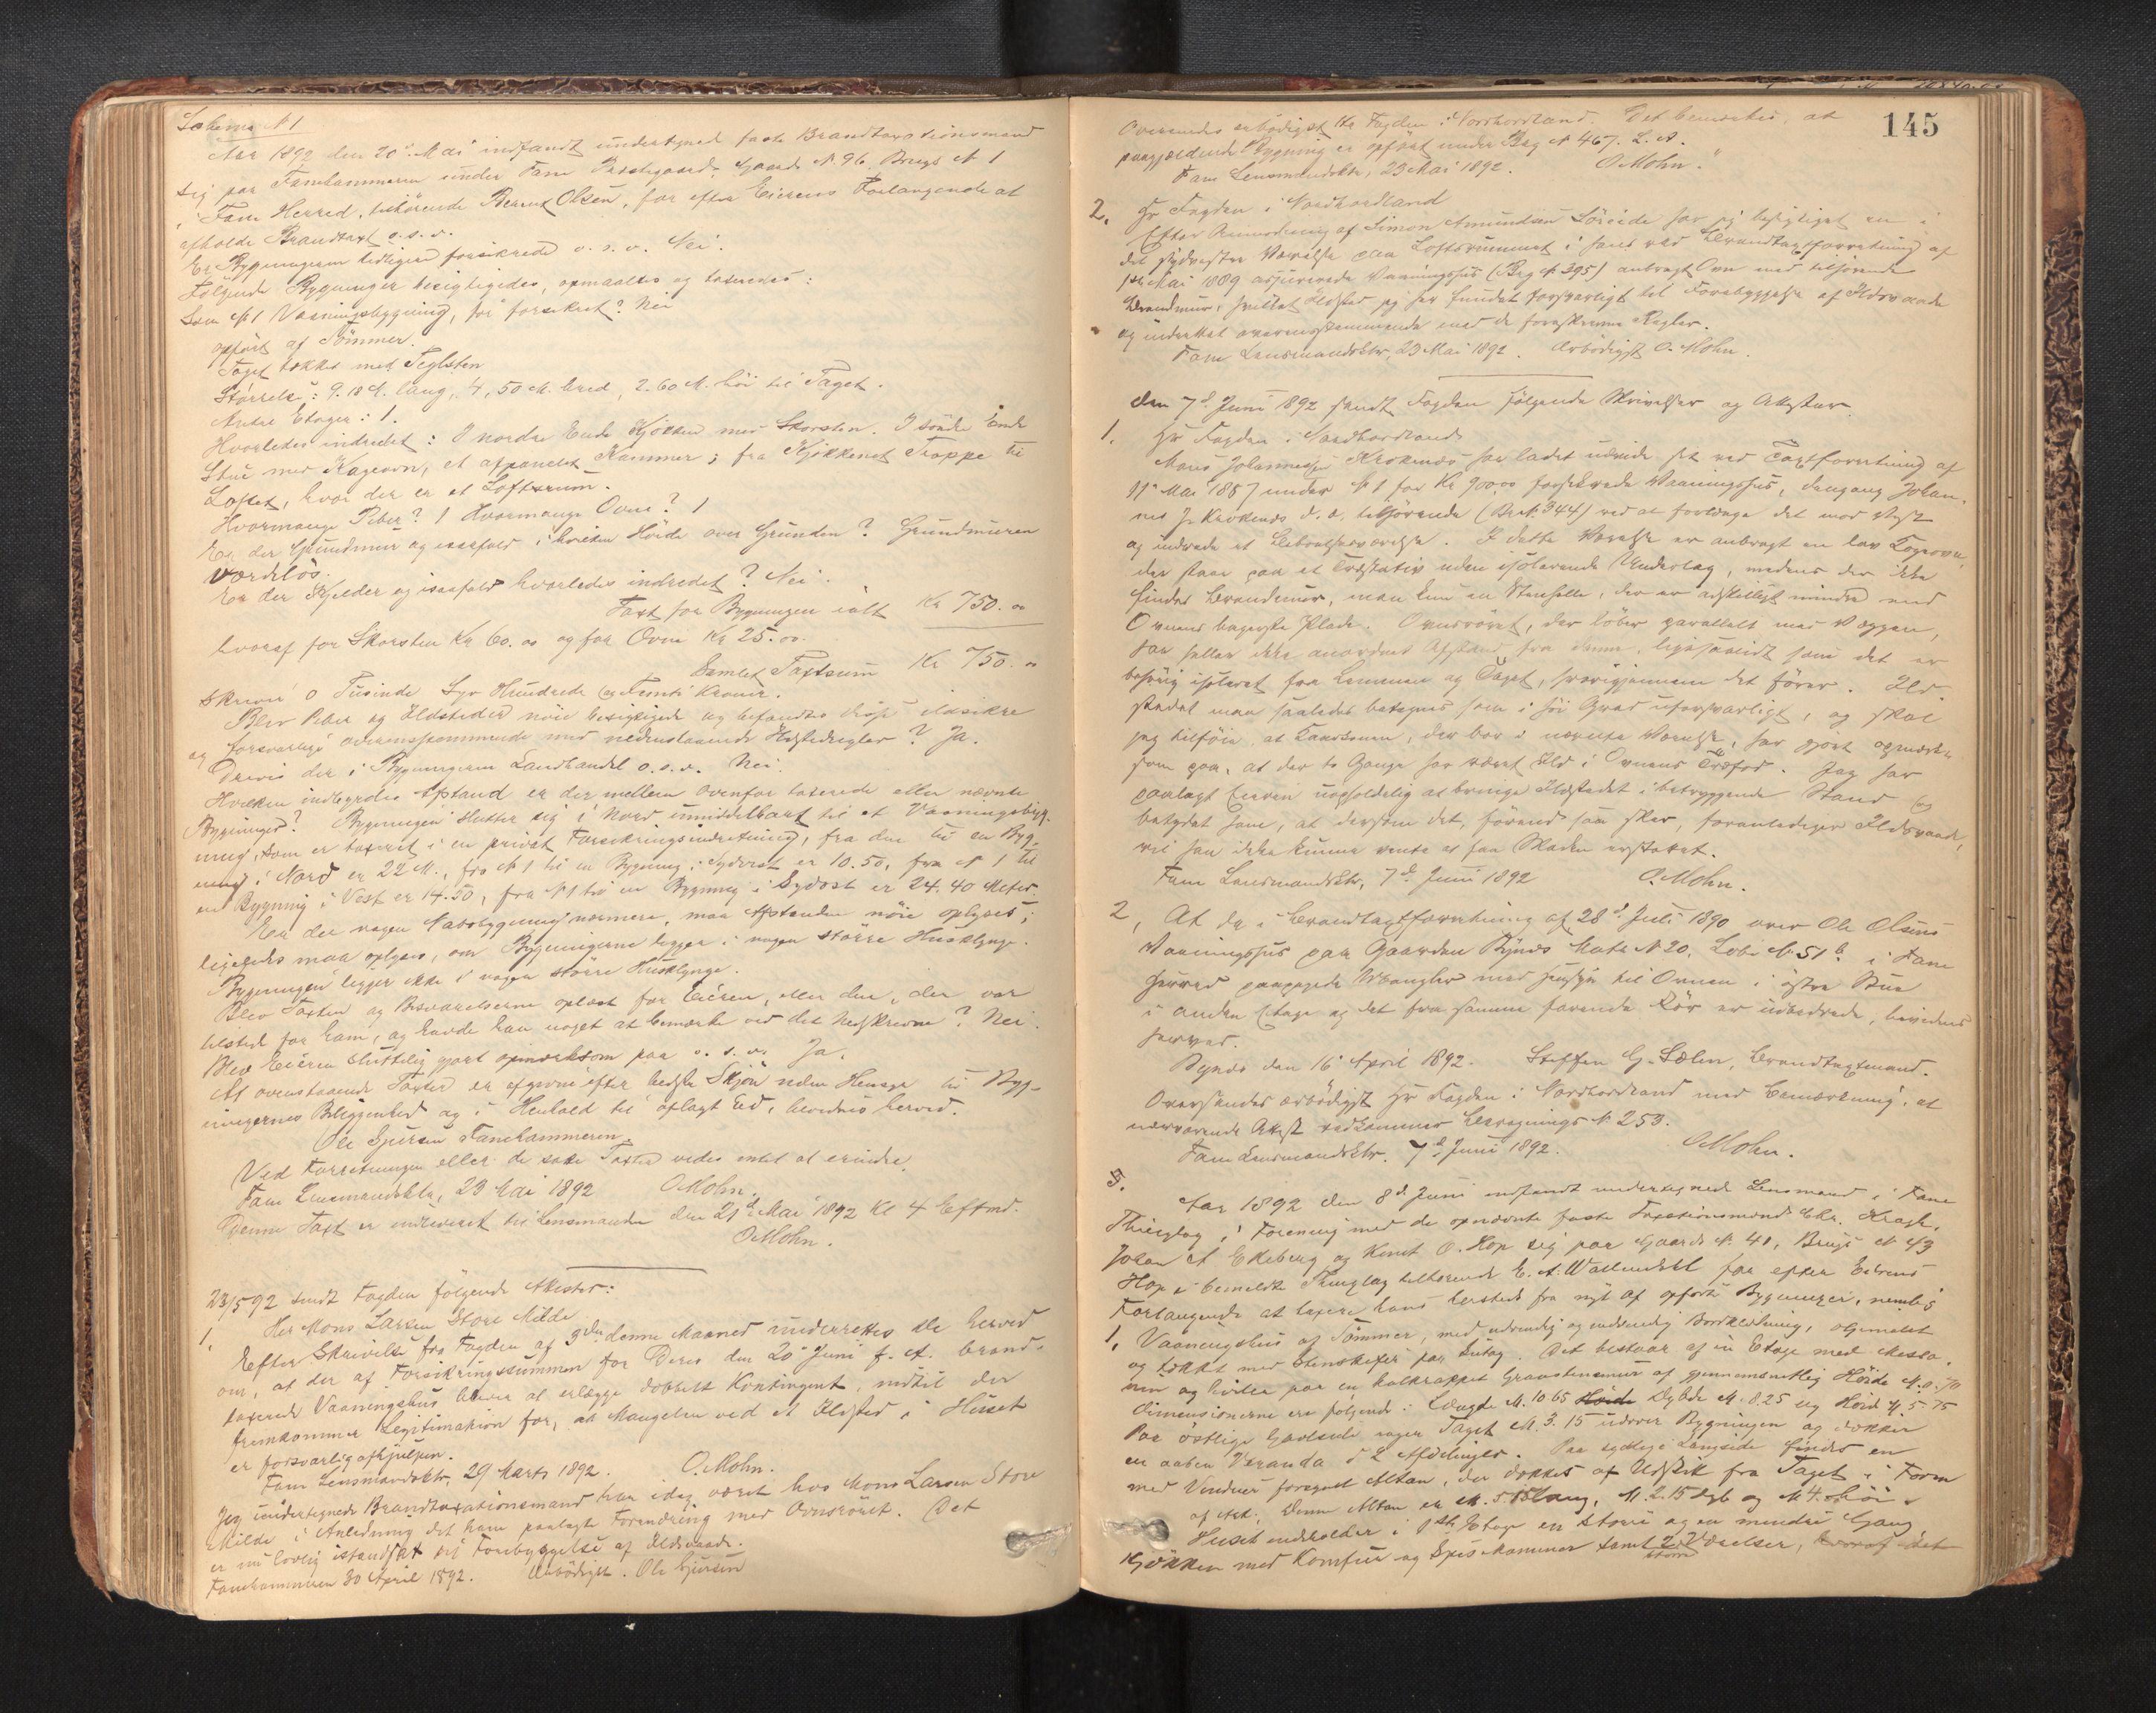 Schema № 1
Aar 1892 den 20de Mai indfandt undertegnede faste Brandtaxtionsmænd
sig paa Fanehammeren under Fane Præstegaard, Gaards № 96 Brugs № 1
i Fane Herred, tilhørende Bernt Olsen, for efter Eierens Forlangende at
afholde Brandtaxt o. s. v.
Er Bygningerne tidligere forsikrede o. s. v. Nei.
Følgende Bygninger besigtigedes, opmaaltes og taxeredes:
Som № 1 Vaaningsbygning, før forsikret? Nei
opført af Tømmer.
Taget tækket med Teglsten
Størrelse: 9.10 M. lang, 4,50 M. bred, 2.60 M. høi til Taget.
Antal Etager: 1.
Hvorledes indredet: I nordre Ende Kjøkken med Skorsten. I søndre Ende
Stue med Kageovn, et afpanelet Kammer; fra Kjøkkenet Trappe til
Loftet, hvor der er et Loftsrum.
Hvormange Piber? 1 Hvormange Ovne? 1
Er der Grundmur og isaafald i hvilken Høide over Grunden? Grundmuren
værdiløs.
Er der Kjelder og isaafald hvorledes indredet? Nei.
Taxt for Bygningen ialt Kr 750.00
hvoraf for Skorsten Kr 60.00 og for Ovne Kr 25.00.
Samlet Taxtsum Kr 750.00
skriver 0 Tusinde Syv Hundrede og Femti Kroner.
Blev Piber og Ildsteder nøie besigtigede og befandtes disse ildsikre
og forsvarlige overensstemmende med nedenstaaende Ildstedregler? Ja.
Drives der i Bygningerne Landhandel o. s. v. Nei.
Hvilken indbyrdes Afstand er der mellem ovenfor taxerede eller nævnte
Bygninger? Bygningen slutter sig i Nord umiddelbart til et Vaaningsbyg-
ning, som er taxeret i en privat Forsikringsindretning, fra den til en Byg-
ning i Nord er 22 M., fra № 1 til en Bygning i Sydvest er 10.50, fra № 1 til
en Bygning i Vest er 14.50, fra № 1 til en Bygning i Sydost er 24.40 Meter.
Er der nogen Nabobygning nærmere, maa Afstanden nøie oplyses;
ligeledes maa oplyses, om Bygningerne ligger i nogen større Husklynge.
Bygningen ligger ikke i nogen større Husklynge.
Blev Taxten og Besvarelserne oplæst for Eieren, eller den, der var
tilstede for ham, og havde han noget at bemærke ved det Nedskrevne? Nei.
Blev Eieren sluttelig gjort opmærksom paa o. s. v. Ja.
At ovenstaaende Taxter er afgivne efter bedste Skjøn uden Hensyn til Byg-
ningernes Beliggenhed og i Henhold til aflagt Ed, bevidnes herved.
Ole Gjersen Fanehammeren.
Ved Forretningen eller de satte Taxter vides intet at erindre.
Fane Lensmandsktr, 23 Mai 1892 O Mohn.
Denne Taxt er indleveret til Lensmanden den 21de Mai 1892 Kl 4 Eftmd.
O Mohn.
23/5 92 sendt Fogden følgende Attester:
1. Her Mons Larsen Store Milde
Efter Skrivelse fra Fogden af 3die denne Maaned underrettes De herved
om, at der af Forsikringssummen for Deres den 20de Juni f. A. brand-
taxerede Vaaningshus bliver at erlægge dobbelt Kontingent, indtil der
fremkommer Legitimation for, at Mangelen ved et Ildsted i Huset
er forsvarlig afhjulpen.
Fane Lensmandsktr, 29 Marts 1892. O. Mohn.
Jeg undertegnede Brandtaxationsmand har idag været hos Mons Larsen Store
Milde i Anledning det ham paalagte Forandring med Ovnsrøret. Det
er nu lovlig istandsat til Forebyggelse af Ildsvaade.
Fanehammeren 30 April 1892. Ærbødigst. Ole Gjersen
145
Oversendes ærbødigst Hr Fogden i Nordhordland. Det bemærkes, at
paagjældende Bygning er opført under Beg № 467. L. A.
Fane Lensmandsktr, 23 Mai 1892. O Mohn."
2. Hr Fogden i Nordhordland
Efter Anmodning af Simon Amundsen Søreide har jeg besigtiget en i
det sydvestre Værelse paa Loftsrummet i hans ved Brandtaxtforretning af
1ste Mai 1889 assurerede Vaaningshus (Beg № 395) anbragt Ovn med tilhørende
Brandmur, hvilket Ildsted jeg har fundet forsvarligt til Forebyggelse af Ildsvaade
og indrettet overensstemmende med de foreskrevne Regler.
Fane Lensmandsktr, 23 Mai 1892. Ærbødigst O. Mohn.
Den 7de Juni 1892 sendt Fogden følgende Skrivelser og Attester.
1. Hr Fogden i Nordhordland
Mons Johannessen Krokenæs har ladet udvide det ved Taxtforretning af
11te Mai 1887 under № 1 for Kr 900.00 forsikrede Vaaningshus, dengang Johan-
nes J. Krokenæs d. æ. tilhørende (Br. № 344) ved at forlænge det mod Vest
og indrede et Beboelsesværelse. I dette Værelse er anbragt en lav Kogeovn,
der staar paa et Træstativ uden isolerende Underlag, medens der ikke
findes Brandmur, men kun en Stenhelle, der er adskilligt mindre end
Ovnens bagerste Plade. Ovnsrøret, der løber parallelt med Væggen,
har heller ikke anordnet Afstand fra denne, ligesaalidt som det er
behørig isoleret fra Lemmen og Taget, hvorigjennem det fører. Ild-
stedet maa saaledes betegnes som i høi Grad uforsvarligt, og skal
jeg tilføie, at Lærerinden, der bor i nævnte Værelse, har gjort opmærk-
som paa, at der to Gange har været Ild i Ovnens Træfod. Jeg har
paalagt Eieren uopholdelig at bringe Ildstedet i betryggende Stand og
betydet ham, at dersom det, førend saa sker, foranlediger Ildsvaade,
vil han ikke kunne vente at faa Skaden erstattet.
Fane Lensmandsktr, 7de Juni 1892 O. Mohn.
2, At de i Brandtaxtforretning af 28de Juli 1890 over Ole Olsens
Vaaningshus paa Gaarden Bynæs Matr № 20, Løbe № 51 b i Fane
Herred paapegede Mangler med Hensyn til Ovnen i østre Stue
i anden Etage og det fra samme førende Rør er udbedrede, bevidnes
herved.
Bynæs den 16 April 1892. Steffen G. Sælen, Brandtaxtmand.
Oversendes ærbødigst Hr Fogden i Nordhordland med Bemærkning, at
nærværende Attest vedkommer Besigtnings № 253.
Fane Lensmandsktr. 7de Juni 1892. O Mohn.
3. Aar 1892 den 8de Juni indfandt undertegnede Lensmand i Fane
Thinglag, i Forening med de opnævnte faste Taxationsmænd Chr. Krogh,
Johan A Ekeberg og Knut O. Hop sig paa Gaards № 41, Brugs № 43
Hop i bemeldte Thinglag tilhørende E. A. Wallendahl for efter Eierens
Forlangende at taxere hans hersteds fra nyt af opførte Bygninger, nemlig
1, Vaaningshus af Tømmer, med udvendig og indvendig Bordklædning, oljemalet
og tækket med Stenskifer paa Sutag. Det bestaar af en Etage med Messa-
nin og hviler paa en kalkrappet Graastensmur af gjennemsnitlig Høide M. 0.70
Dimensionerne ere følgende: Længde M. 10.65 Høide Dybde M. 8.25 og Høide M. 5.75
Paa østlige Gavlside rager Taget M. 3.15 udover Bygningen og dækker
en aaben Veranda i 2 Afdelinger. Paa sydlige Langside findes en
med Vinduer forsynet Altan, der dækkes af Udstik fra Taget i Form
af Ark. Denne Altan er M. 5.15 lang, M. 2.15 dyb og M. 4. høi.
Huset indeholder i 1ste Etage en større og en mindre Gang
Kjøkken med Komfur og Spiskammer samt 2 store Værelser, hvoraf det